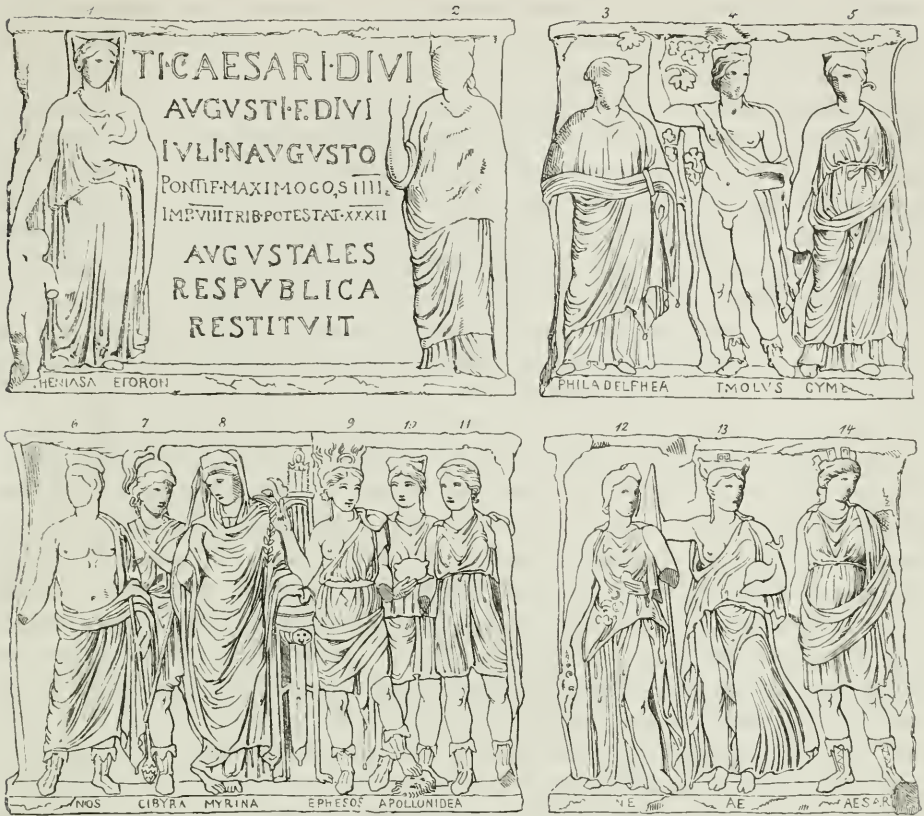 1 2
TI·CAESARI·DIVI
AVGVSTI·F·DIVI
IVLI·N·AVGVSTO
PONTIF·MAXIMO·COS IIII
IMP·VIII TRIB·POTESTAT·XXXII
AVGVSTALES
RESPVBLICA
RESTITVIT
HENIASA ETORON
3 4 5
PHILADELFHEA TMOLVS CYME
6 7 8 9 10 11
NOS CIBYRA MYRINA EPHESOS APOLLONIDEA
12 13 14
NE AE AESAR